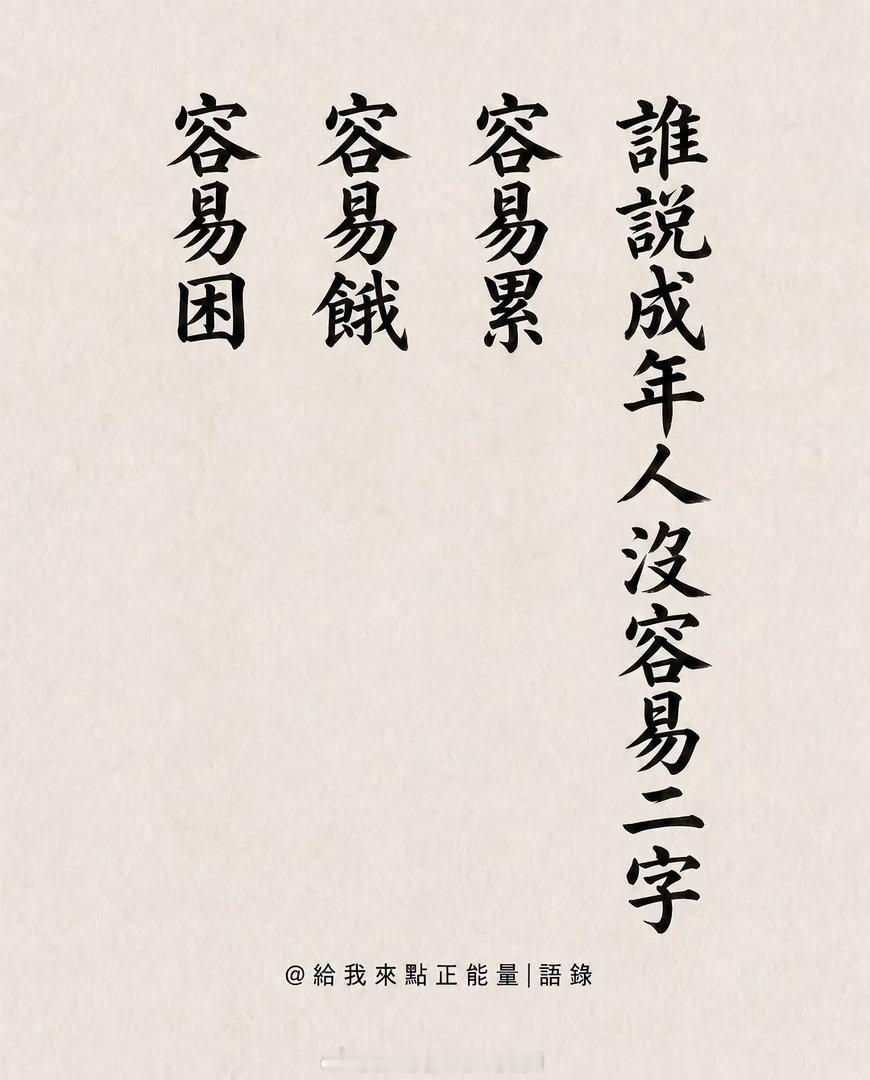 誰説成年人沒容易二字
容易累
容易餓
容易困
@給我來點正能量|語錄